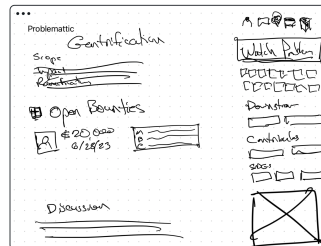 Problemattic
Gentrification
Scope
Impact
Open Bounties
$20,000
6/28/23
A
B
C
Discussion
Watch Problem
Downstream
Contributors
SDGs